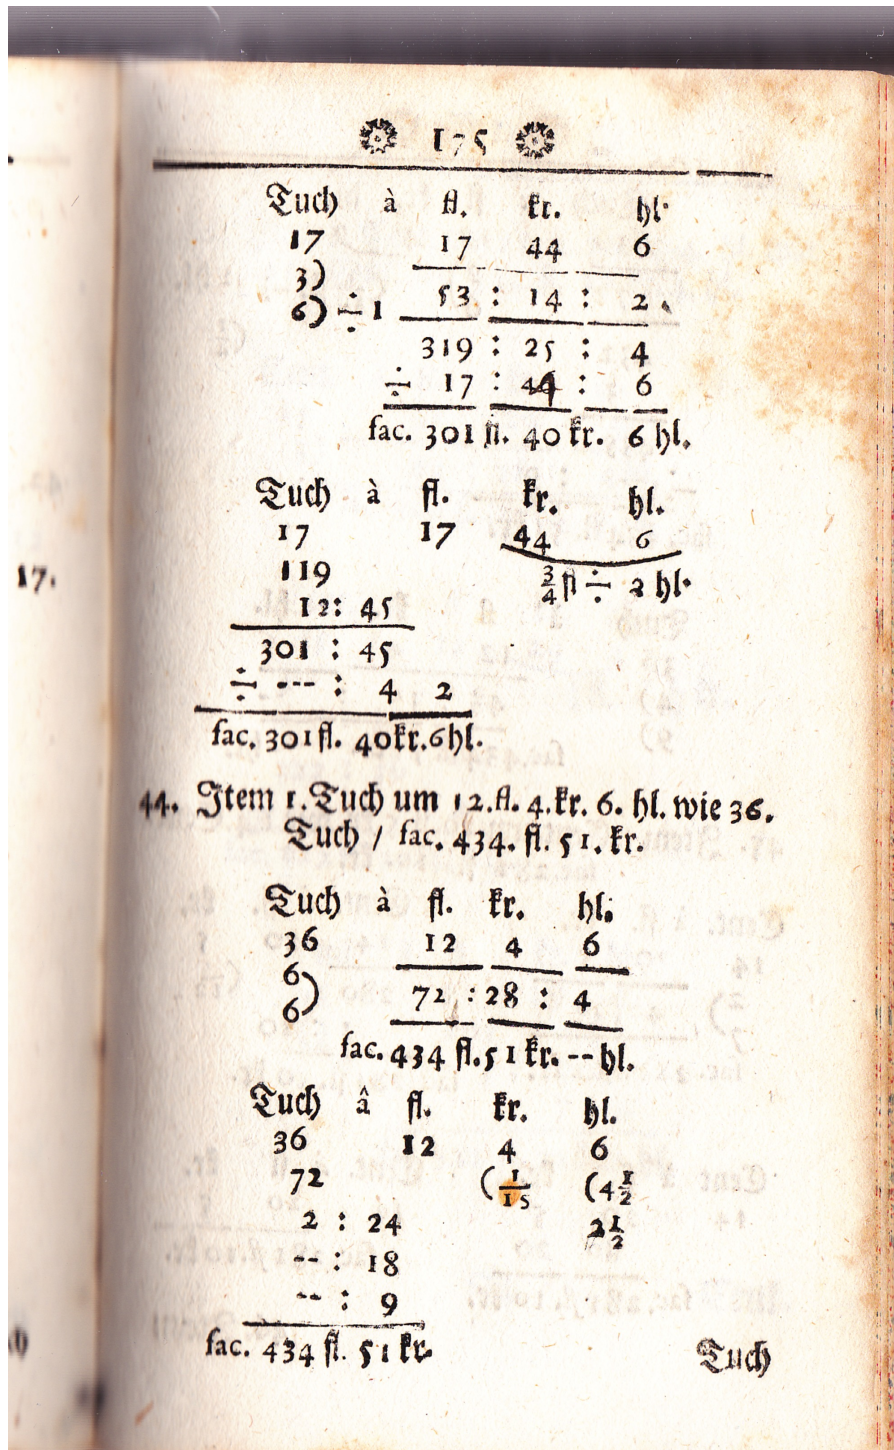 175
Tuch à fl. kr. hl.
17 17 44 6
3)
53 : 14 : 2
6) ÷ 1
319 : 25 : 4
÷ 17 : 44 : 6
fac. 301 fl. 40 kr. 6 hl.
Tuch à fl. kr. hl.
17 17 44 6
119 3/4 fl ÷ 2 hl.
12: 45
301 : 45
÷ --- : 4 2
fac. 301 fl. 40 kr. 6 hl.
17.
44. Item 1. Tuch um 12. fl. 4. kr. 6. hl. wie 36.
Tuch / fac. 434. fl. 51. kr.
Tuch à fl. kr. hl.
36 12 4 6
6)
72 : 28 : 4
6)
fac. 434 fl. 51 kr. -- hl.
Tuch â fl. kr. hl.
36 12 4 6
72 (1/15 (4 1/2
2 : 24 2 1/2
-- : 18
-- : 9
fac. 434 fl. 51 kr.
Tuch